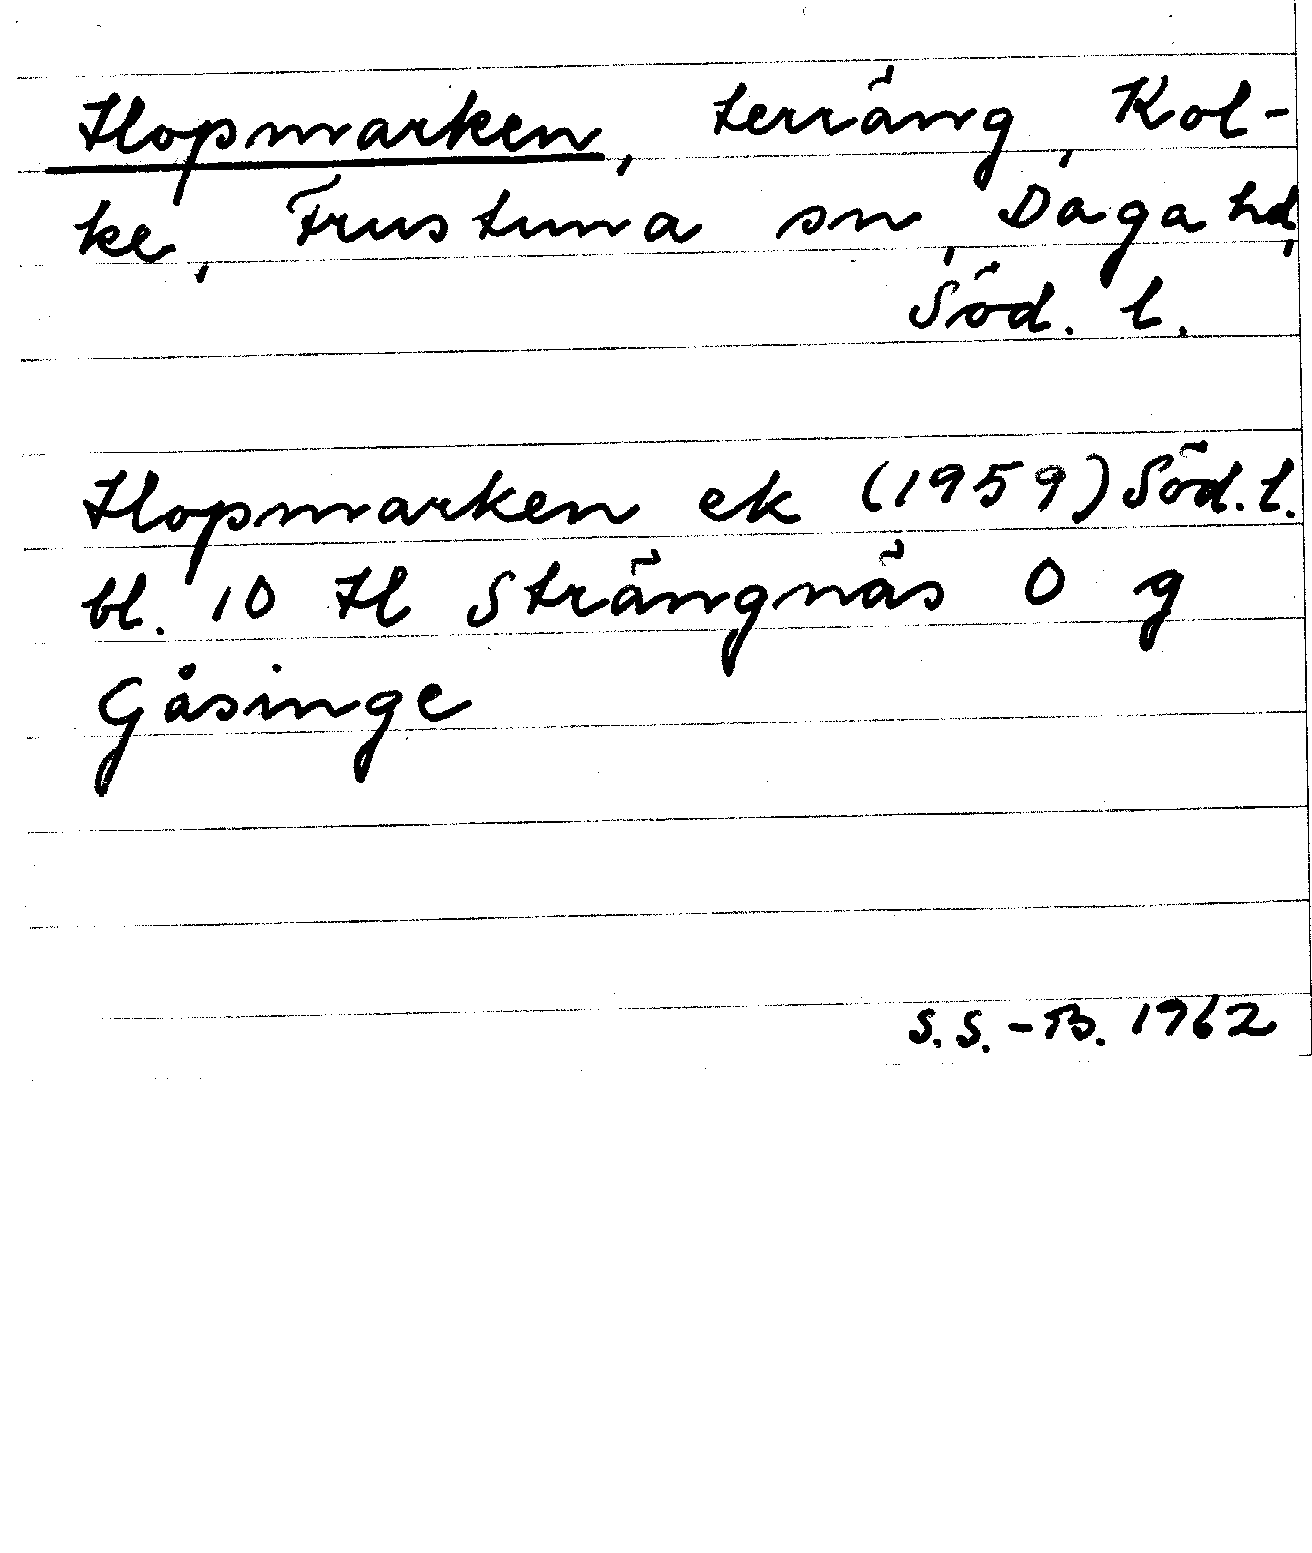 Hopmarken, terräng, Kol-
ke, Frustuna sn, Daga hd,
Söd. l.
Hopmarken ek (1959) Söd. l.
bl. 10 H Strängnäs 0 g
Gåsinge
S. S. -B. 1962